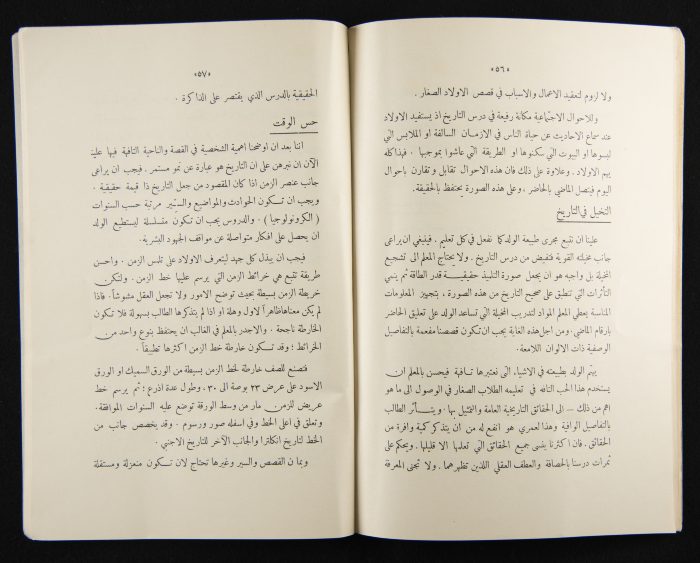 «٥٦»
ولا لزوم لتعقيد الاعمال والاسباب في قصص الاولاد الصغار .
وللاحوال الاجتماعية مكانة رفيعة في درس التاريخ اذ يستفيد الاولاد
عند سماع الاحاديث عن حياة الناس في الازمـان السـالفة او الملابس التي
لبسوها او البيوت التي سكنوها او الطريقة التي عاشوا بموجبها . فهذا كله
يهم الاولاد . وعلاوة على ذلك فان هذه الاحوال تقابل وتقارن باحوال
اليوم فيتصل الماضي بالحاضر ، وعلى هذه الصورة يحتفظ بالحقيقة .
التخيل في التاريخ
علينا ان نتبع مجرى طبيعة الولد كما نفعل في كل تعليم . فينبغي ان يراعى
جانب مخيلته القوية في درس التاريخ . ولا يحتاج المعلم الى تشجيع
المخيلة بل واجبه هو ان يجعل صورة التلميذ حقيقيـة قدر الطاقة ثم ينمي
التأثرات التي تنطبق على صحيح التاريخ من هذه الصورة ، بتجهيز المعلومات
المناسبة يعطي المعلم المواد لتدريب المخيلة التي تساعد الولد على تعليق الحاضر
بارقام الماضي . ومن اجل هذه الغاية يجب ان تكون قصصنا مفعمة بالتفاصيل
الوصفية ذات الالوان اللامعة .
يهتم الولد بطبيعته في الاشياء التي نعتبرها تـافهة فيحسن بالمعلم ان
يستخدم هذا الحب التافه في تعليمه الطلاب الصغار في الوصول الى ما هو
اهم من ذلك – الى الحقائق التاريخية العامة والتمثيل بها . ويتـأثر الطالب
بالتفاصيل الوافية وهذا لعمري هو انفع له من ان يتذكر كمية وافرة من
الحقائق . فان اكثرنا ينسى جميع الحقائق التي تعلمها الا قليلها . ويحكم على
ثمرات درسنا بالحصافة والعطف العقلي اللذين نظهرهما . ولا تجنى المعرفة
«٥٧»
الحقيقية بالدرس الذي يقتصر على الذاكرة .
حس الوقت
اننا بعد ان اوضحنا اهمية الشخصية في القصة والناحية التافهة فيها علينا
الآن ان نبرهن على ان التاريخ هو عبارة عن نمو مستمر . فيجب ان يراعى
جانب عنصر الزمن اذا كان المقصود من جعل التاريخ ذا قيمة حقيقية .
ويجب ان تـكون الحوادث والمواضيع والسِيَر مرتبة حسب السنوات
( الكرونولوجيا ) . والدروس يجب ان تـكون متسلسلة ليستطيع الولد
ان يحصل على افكار متواصلة عن مواقف الجهود البشرية .
فيجب ان يبذل كل جهد ليتعرف الاولاد على تلمس الزمن . واحسن
طريقة تتبع هي خرائط الزمن التي يرسم عليها خط الزمن . ولتكن
خريطة الزمن بسيطة بحيث توضح الامور ولا نجعل العقل مشوشاً . فاذا
لم يكن معناها ظاهراً لاول وهلة او اذا لم يتذكرها الطالب بسهولة فلا تكون
الخارطة ناجحة . والاجدر بالمعلم في الغالب ان يحتفظ بنوع واحد من
الخرائط ؛ وقد تـكون خارطة خط الزمن اكثرها تطبيقاً .
فتصنع للصف خارطة لخط الزمن بسيطة من الورق السميك او الورق
الاسود على عرض ٢٣ بوصة الى ٣٠ ، وطول عدة اذرع ؛ ثم يرسم خط
عريض للزمن مار من وسط الورقة توضع عليه السنوات الموافقة .
وتعلق في اعلى الخط وفي اسفله صور ورسوم . وقد يخصص جانب من
الخط لتاريخ انكلترا والجانب الآخر للتاريخ الاجنبي .
وبما ان القصص والسير وغيرها تحتاج لان تـكون منعزلة ومستقلة